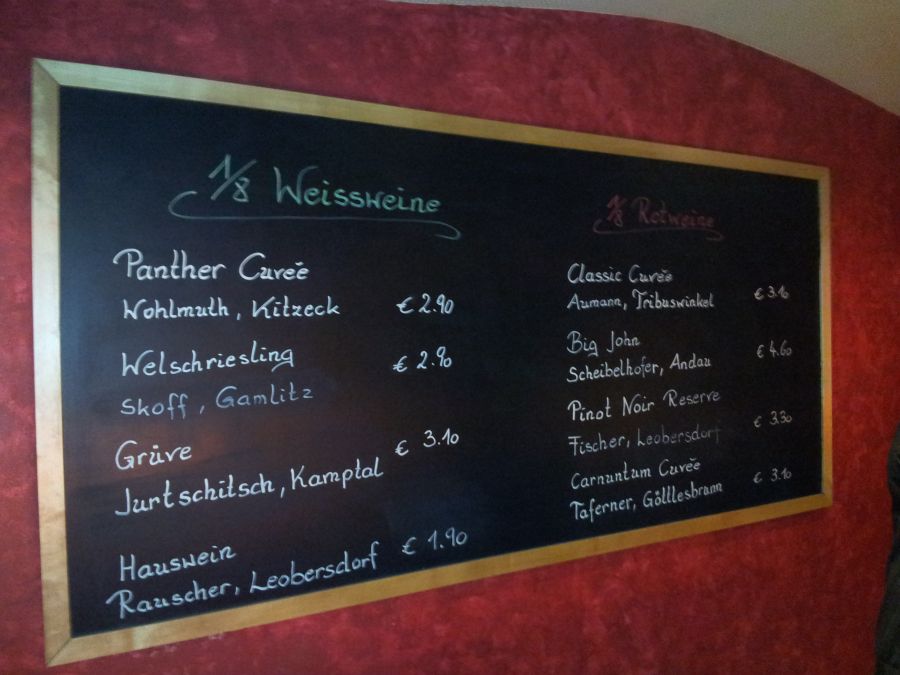 1/8 Weissweine
Panther Cuveé
Wohlmuth, Kitzeck € 2.90
Welschriesling € 2.90
Skoff, Gamlitz
Grüve € 3.10
Jurtschitsch, Kamptal
Hauswein € 1.90
Rauscher, Leobersdorf
1/8 Rotweine
Classic Cuveé
Aumann, Tribuswinkel € 3.10
Big John € 4.60
Scheibelhofer, Andau
Pinot Noir Reserve
Fischer, Leobersdorf € 3.30
Carnuntum Cuveé
Taferner, Göttlesbrunn € 3.10